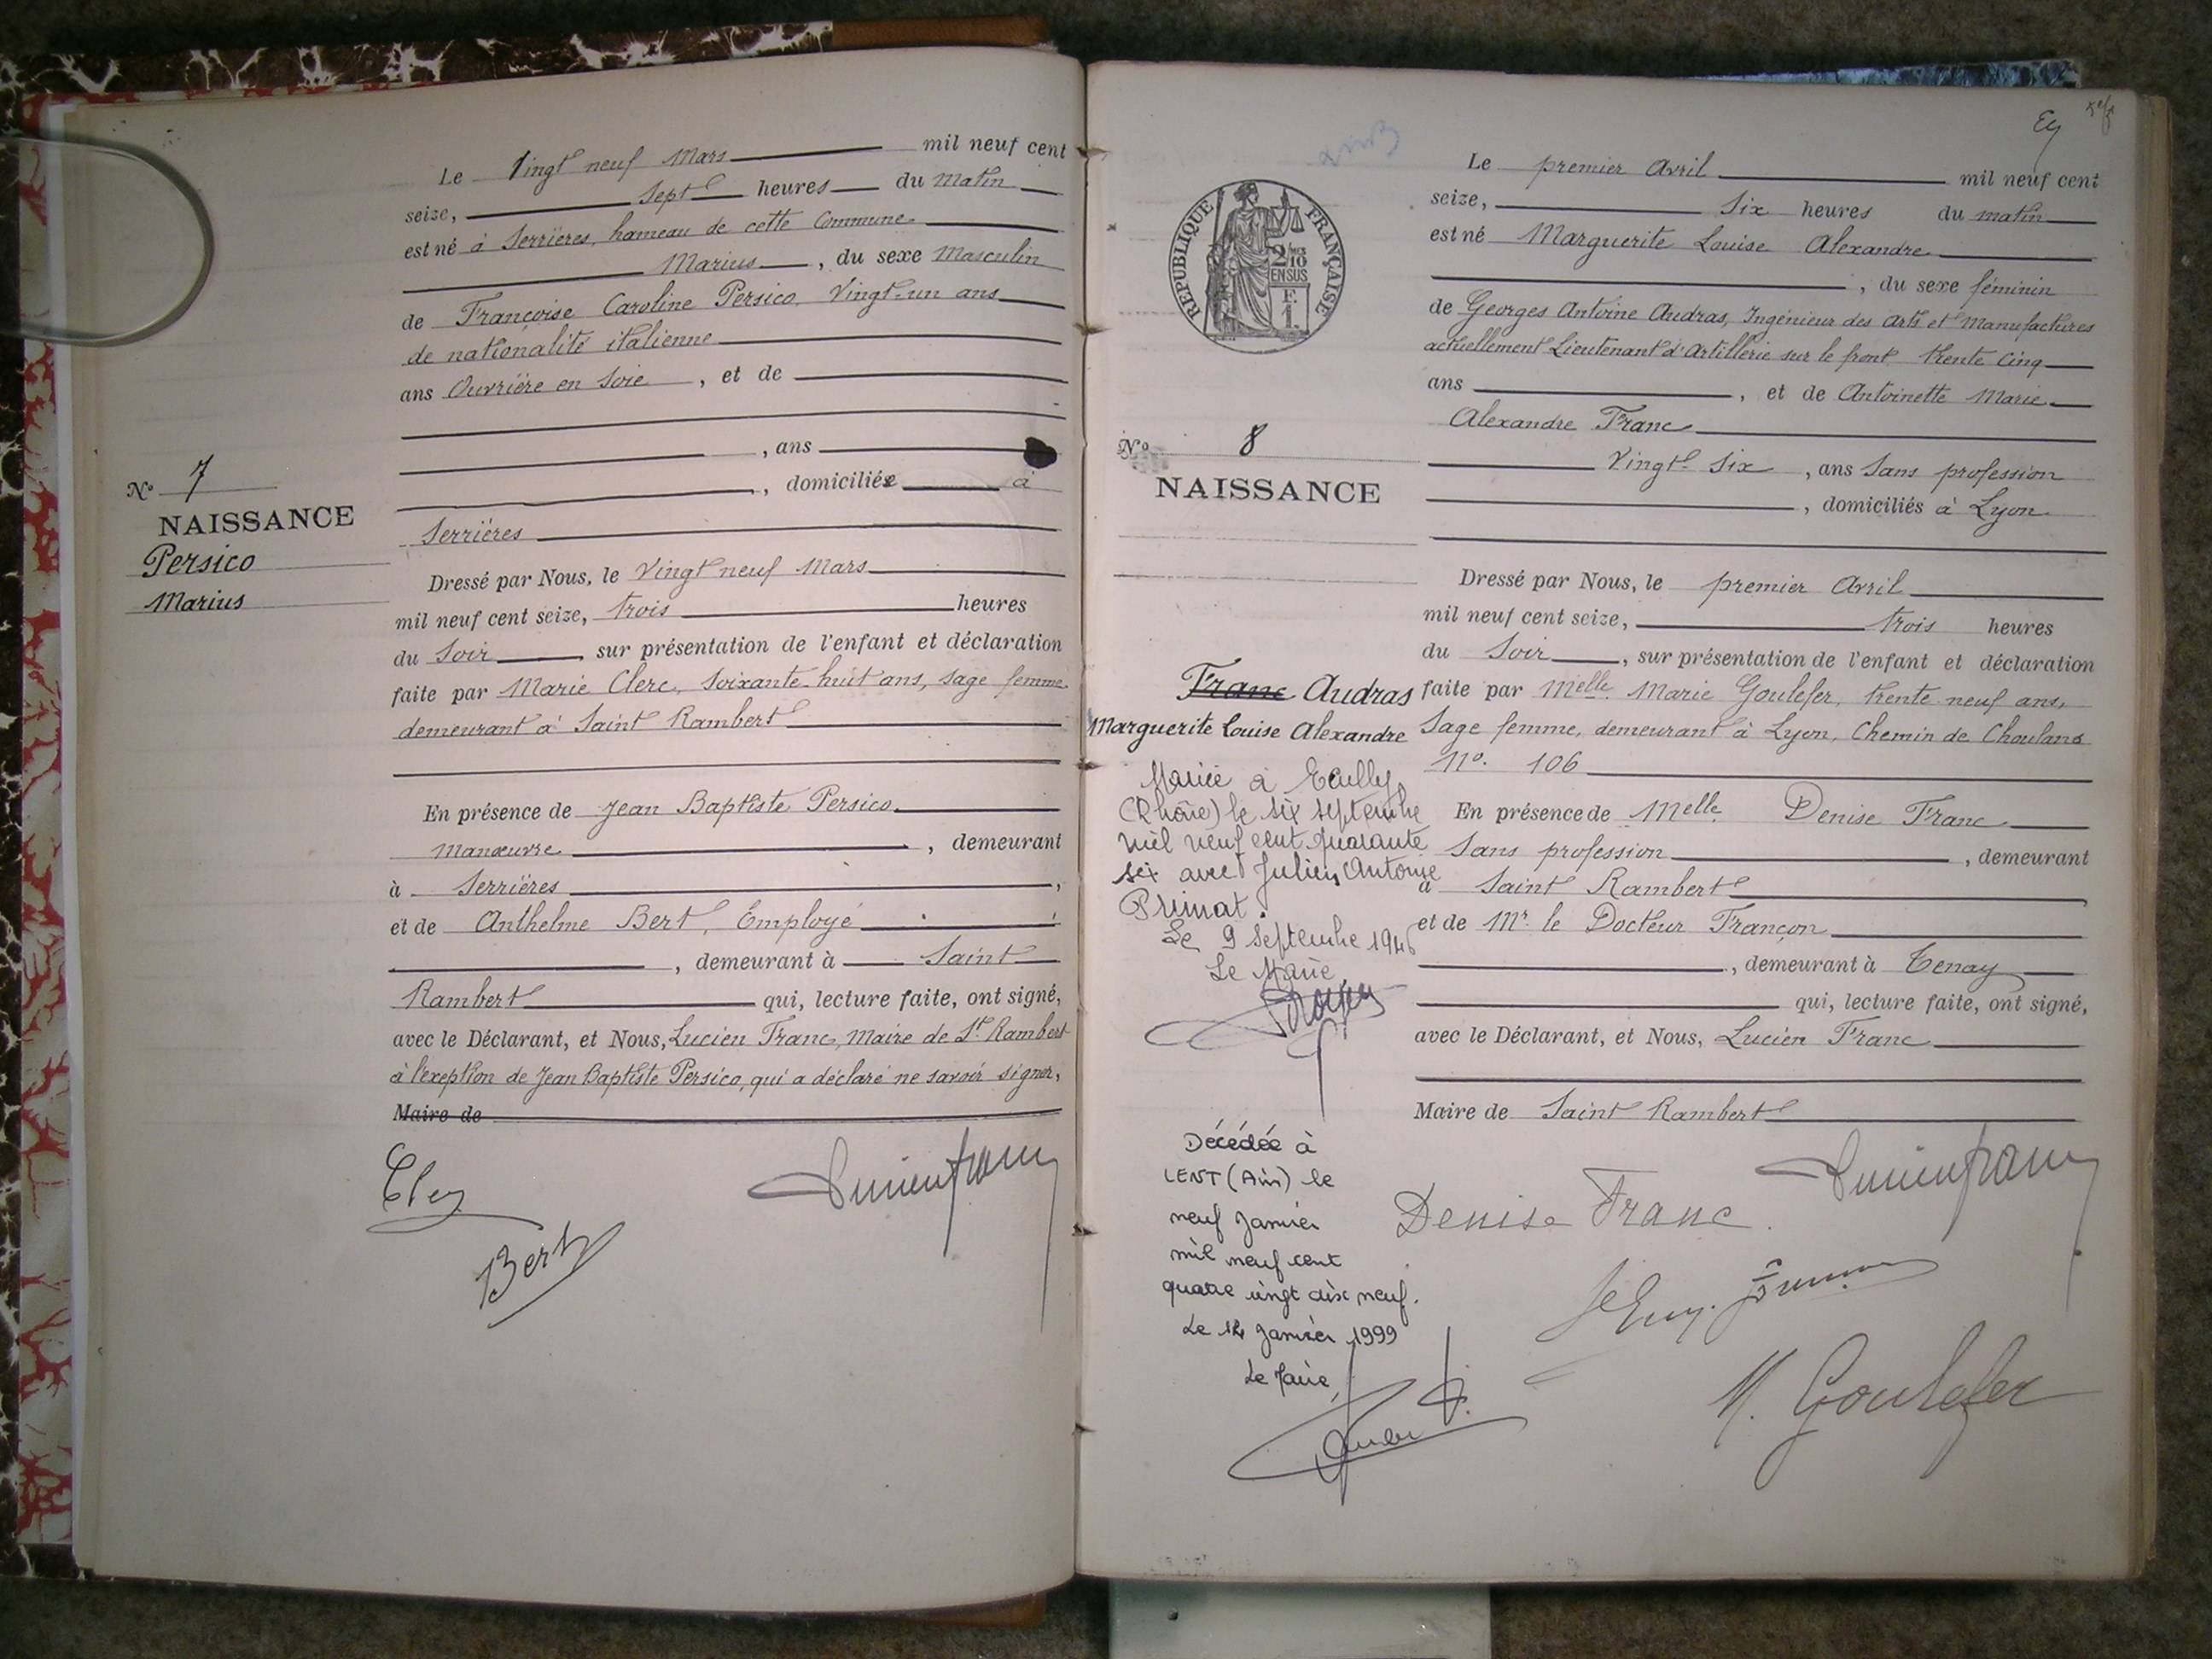 Le Vingt neuf Mars mil neuf cent
seize, sept heures du matin
est né à Serrières, hameau de cette Commune
Marius , du sexe Masculin
de Françoise Caroline Persico Vingt-un ans
de nationalité italienne
ans Ouvrière en soie , et de
, ans
, domiciliée à
Serrières
N° 7
NAISSANCE
Persico
Marius
Dressé par Nous, le Vingt neuf Mars
mil neuf cent seize, trois heures
du Soir , sur présentation de l'enfant et déclaration
faite par Marie Clerc, soixante-huit ans, sage femme
demeurant à Saint Rambert
En présence de Jean Baptiste Persico
Manœuvre , demeurant
à Serrières ,
et de Anthelme Bert, Employé
, demeurant à Saint
Rambert qui, lecture faite, ont signé,
avec le Déclarant, et Nous, Lucien Franc, Maire de St Rambert
à l'exeption de Jean Baptiste Persico, qui a déclaré ne savoir signer,
Maire de
Bert
Lucien Franc
REPUBLIQUE FRANÇAISE
2/10 EN SUS
F. 1.
Le premier Avril mil neuf cent
seize, Six heures du matin
est né Marguerite Louise Alexandre
, du sexe féminin
de Georges Antoine Audras, Ingénieur des Arts et Manufactures
actuellement Lieutenant d'Artillerie sur le front trente cinq
ans , et de Antoinette Marie
Alexandre Franc
Vingt-Six , ans Sans profession
, domiciliés à Lyon
N° 8
NAISSANCE
Dressé par Nous, le premier Avril
mil neuf cent seize, trois heures
du Soir , sur présentation de l'enfant et déclaration
faite par Melle Marie Goulefer, trente neuf ans,
Sage femme, demeurant à Lyon, Chemin de Choulans
N°. 106
En présence de Melle Denise Franc
Sans profession , demeurant
à Saint Rambert
et de Mr le Docteur Françon
, demeurant à Tenay
qui, lecture faite, ont signé,
avec le Déclarant, et Nous, Lucien Franc
Maire de Saint Rambert
Franc Audras
Marguerite Louise Alexandre
Mariée à Ecully
(Rhône) le six septembre
mil neuf cent quarante
six avec Julien Antoine
Primat.
Le 9 Septembre 1946
Le Maire
Décédée à
LENT (Ain) le
neuf Janvier
mil neuf cent
quatre vingt dix neuf.
Le 14 Janvier 1999
Le Maire,
Lucien Franc
Denise Franc
M. Goulefer